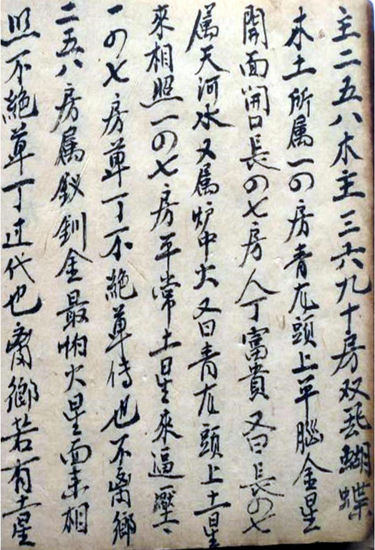 主二五八木主三六九十房双飛蝴蝶
木土所属一の房青龙頭上平腦金星
開面開口長の七房人丁富貴又曰長の七
属天河水又属炉中火又曰青龙頭上土星
來相照一の七房平常土星來逼壓
一の七房单丁不絶单傳也不离鄉
二五八房属釵釧金最怕火星面来相
照不絶单丁过代也离鄉若有土星